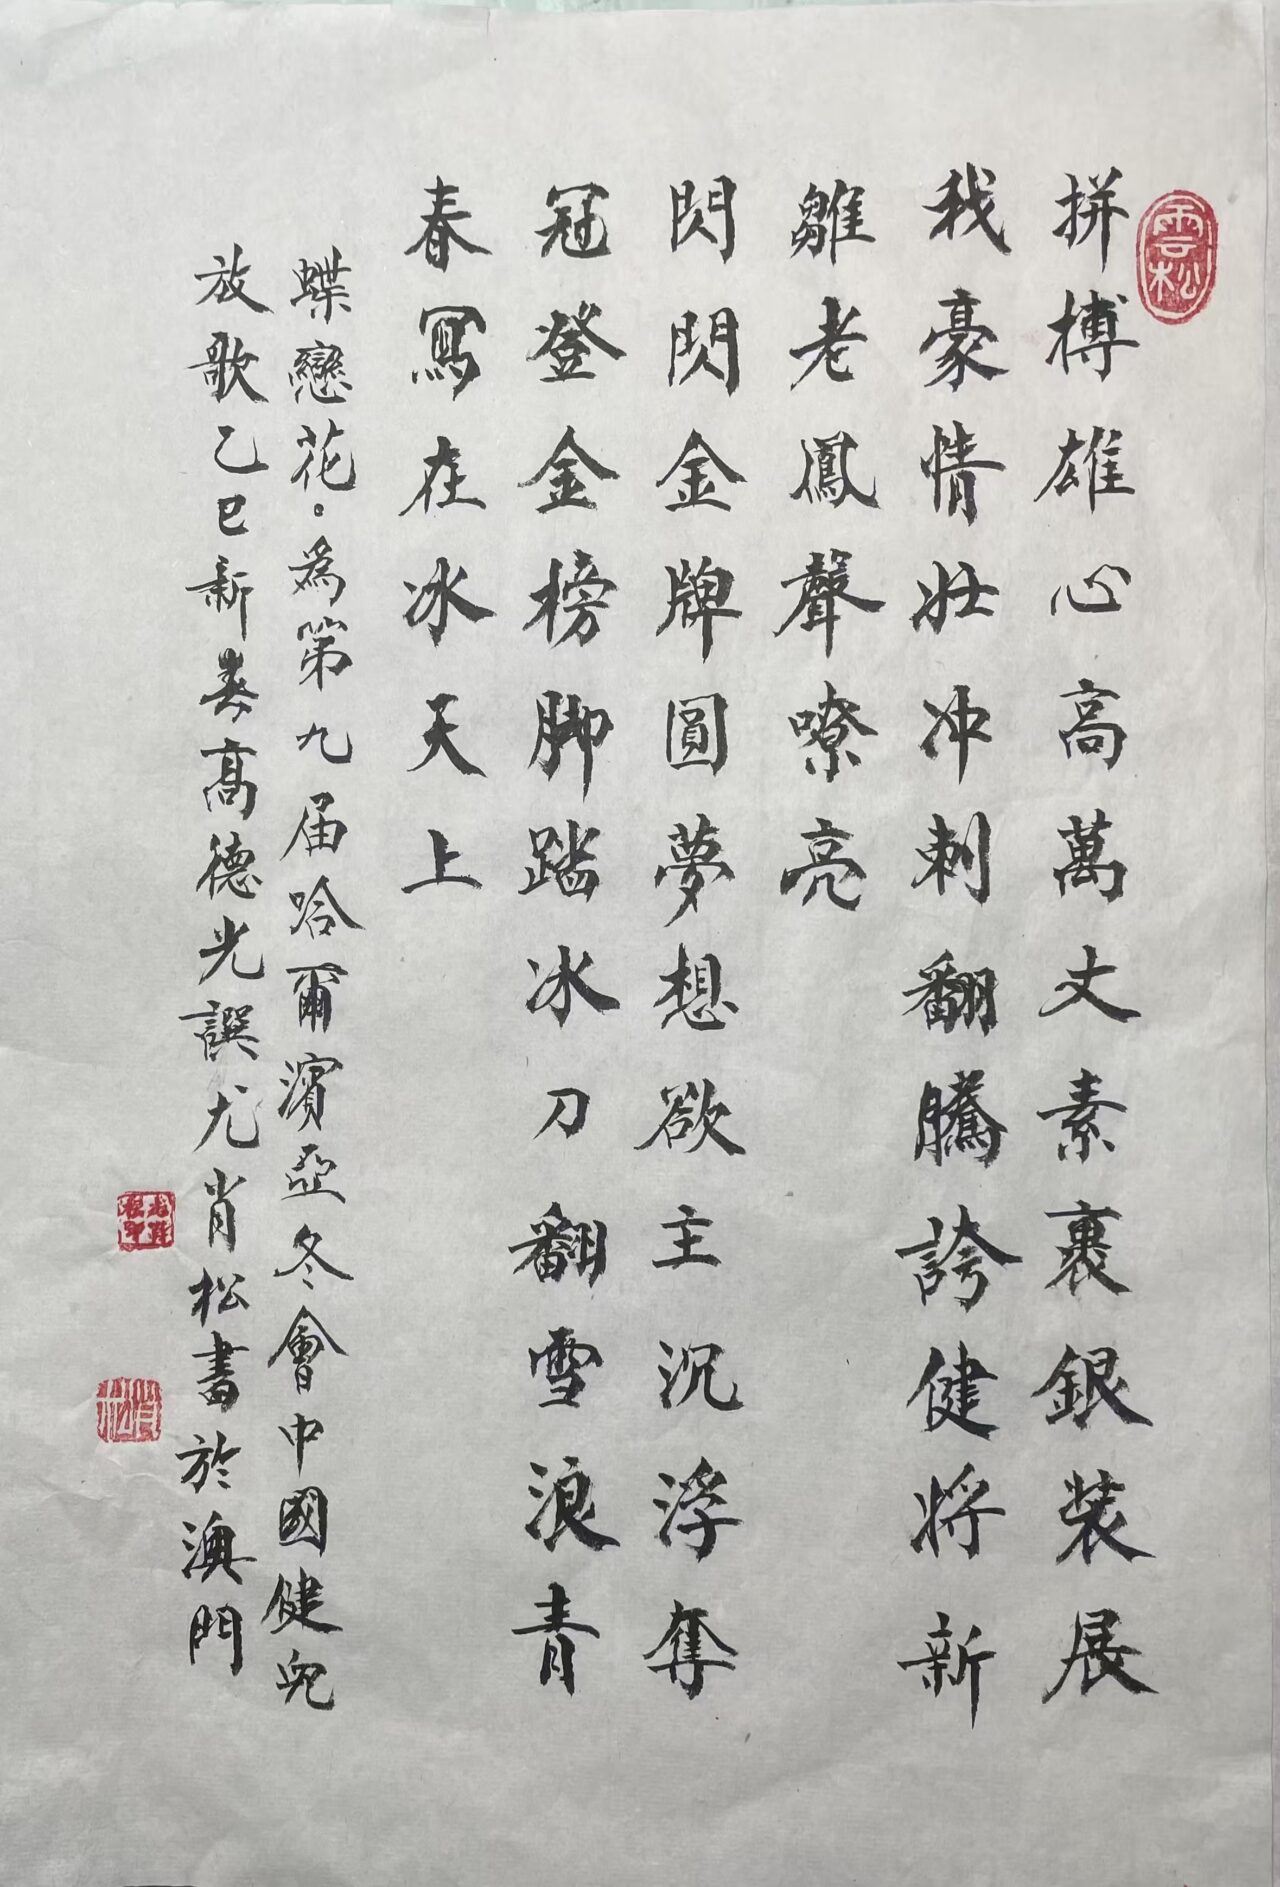 雲松
拼搏雄心高萬丈素裹銀裝展
我豪情壯冲刺翻騰誇健將新
雛老鳳聲嘹亮
閃閃金牌圓夢想欲主沉浮奪
冠登金榜脚踏冰刀翻雪浪青
春寫在冰天上
蝶戀花。為第九届哈爾濱亞冬會中國健兒
放歌乙巳新春高德光譔尤肖松書於澳門